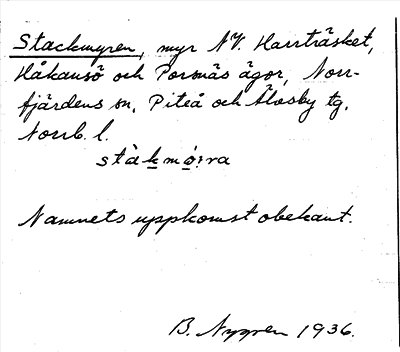 Stackmyren, myr NV. Harrträsket,
Håkansö och Porsnäs ägor, Norr-
fjärdens sn, Piteå och Älvsby tg,
Norrb. l.
stàkmó:ra
Namnets uppkomst obekant.
B. Nygren 1936.